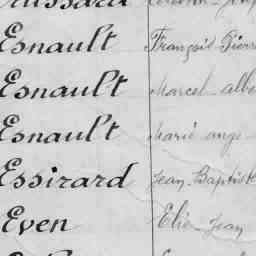 Esnault François Pierre
Esnault Marcel albe
Esnault Marie ange
Essirard Jean Baptiste
Even Elie Jean